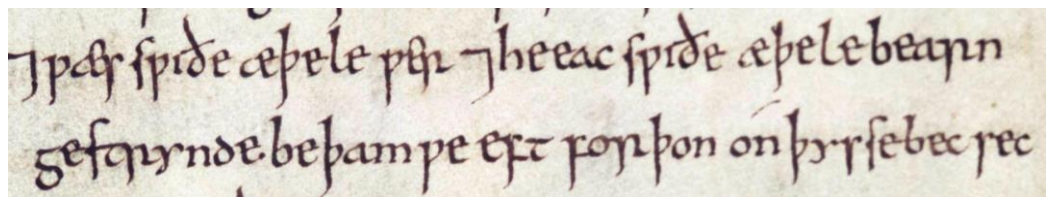 ⁊ ƿæs sƿiðe æþele ƿer ⁊ he eac sƿiðe æþele bearn
gestrynde. be þam ƿe eft forþon ón þysse bec sec